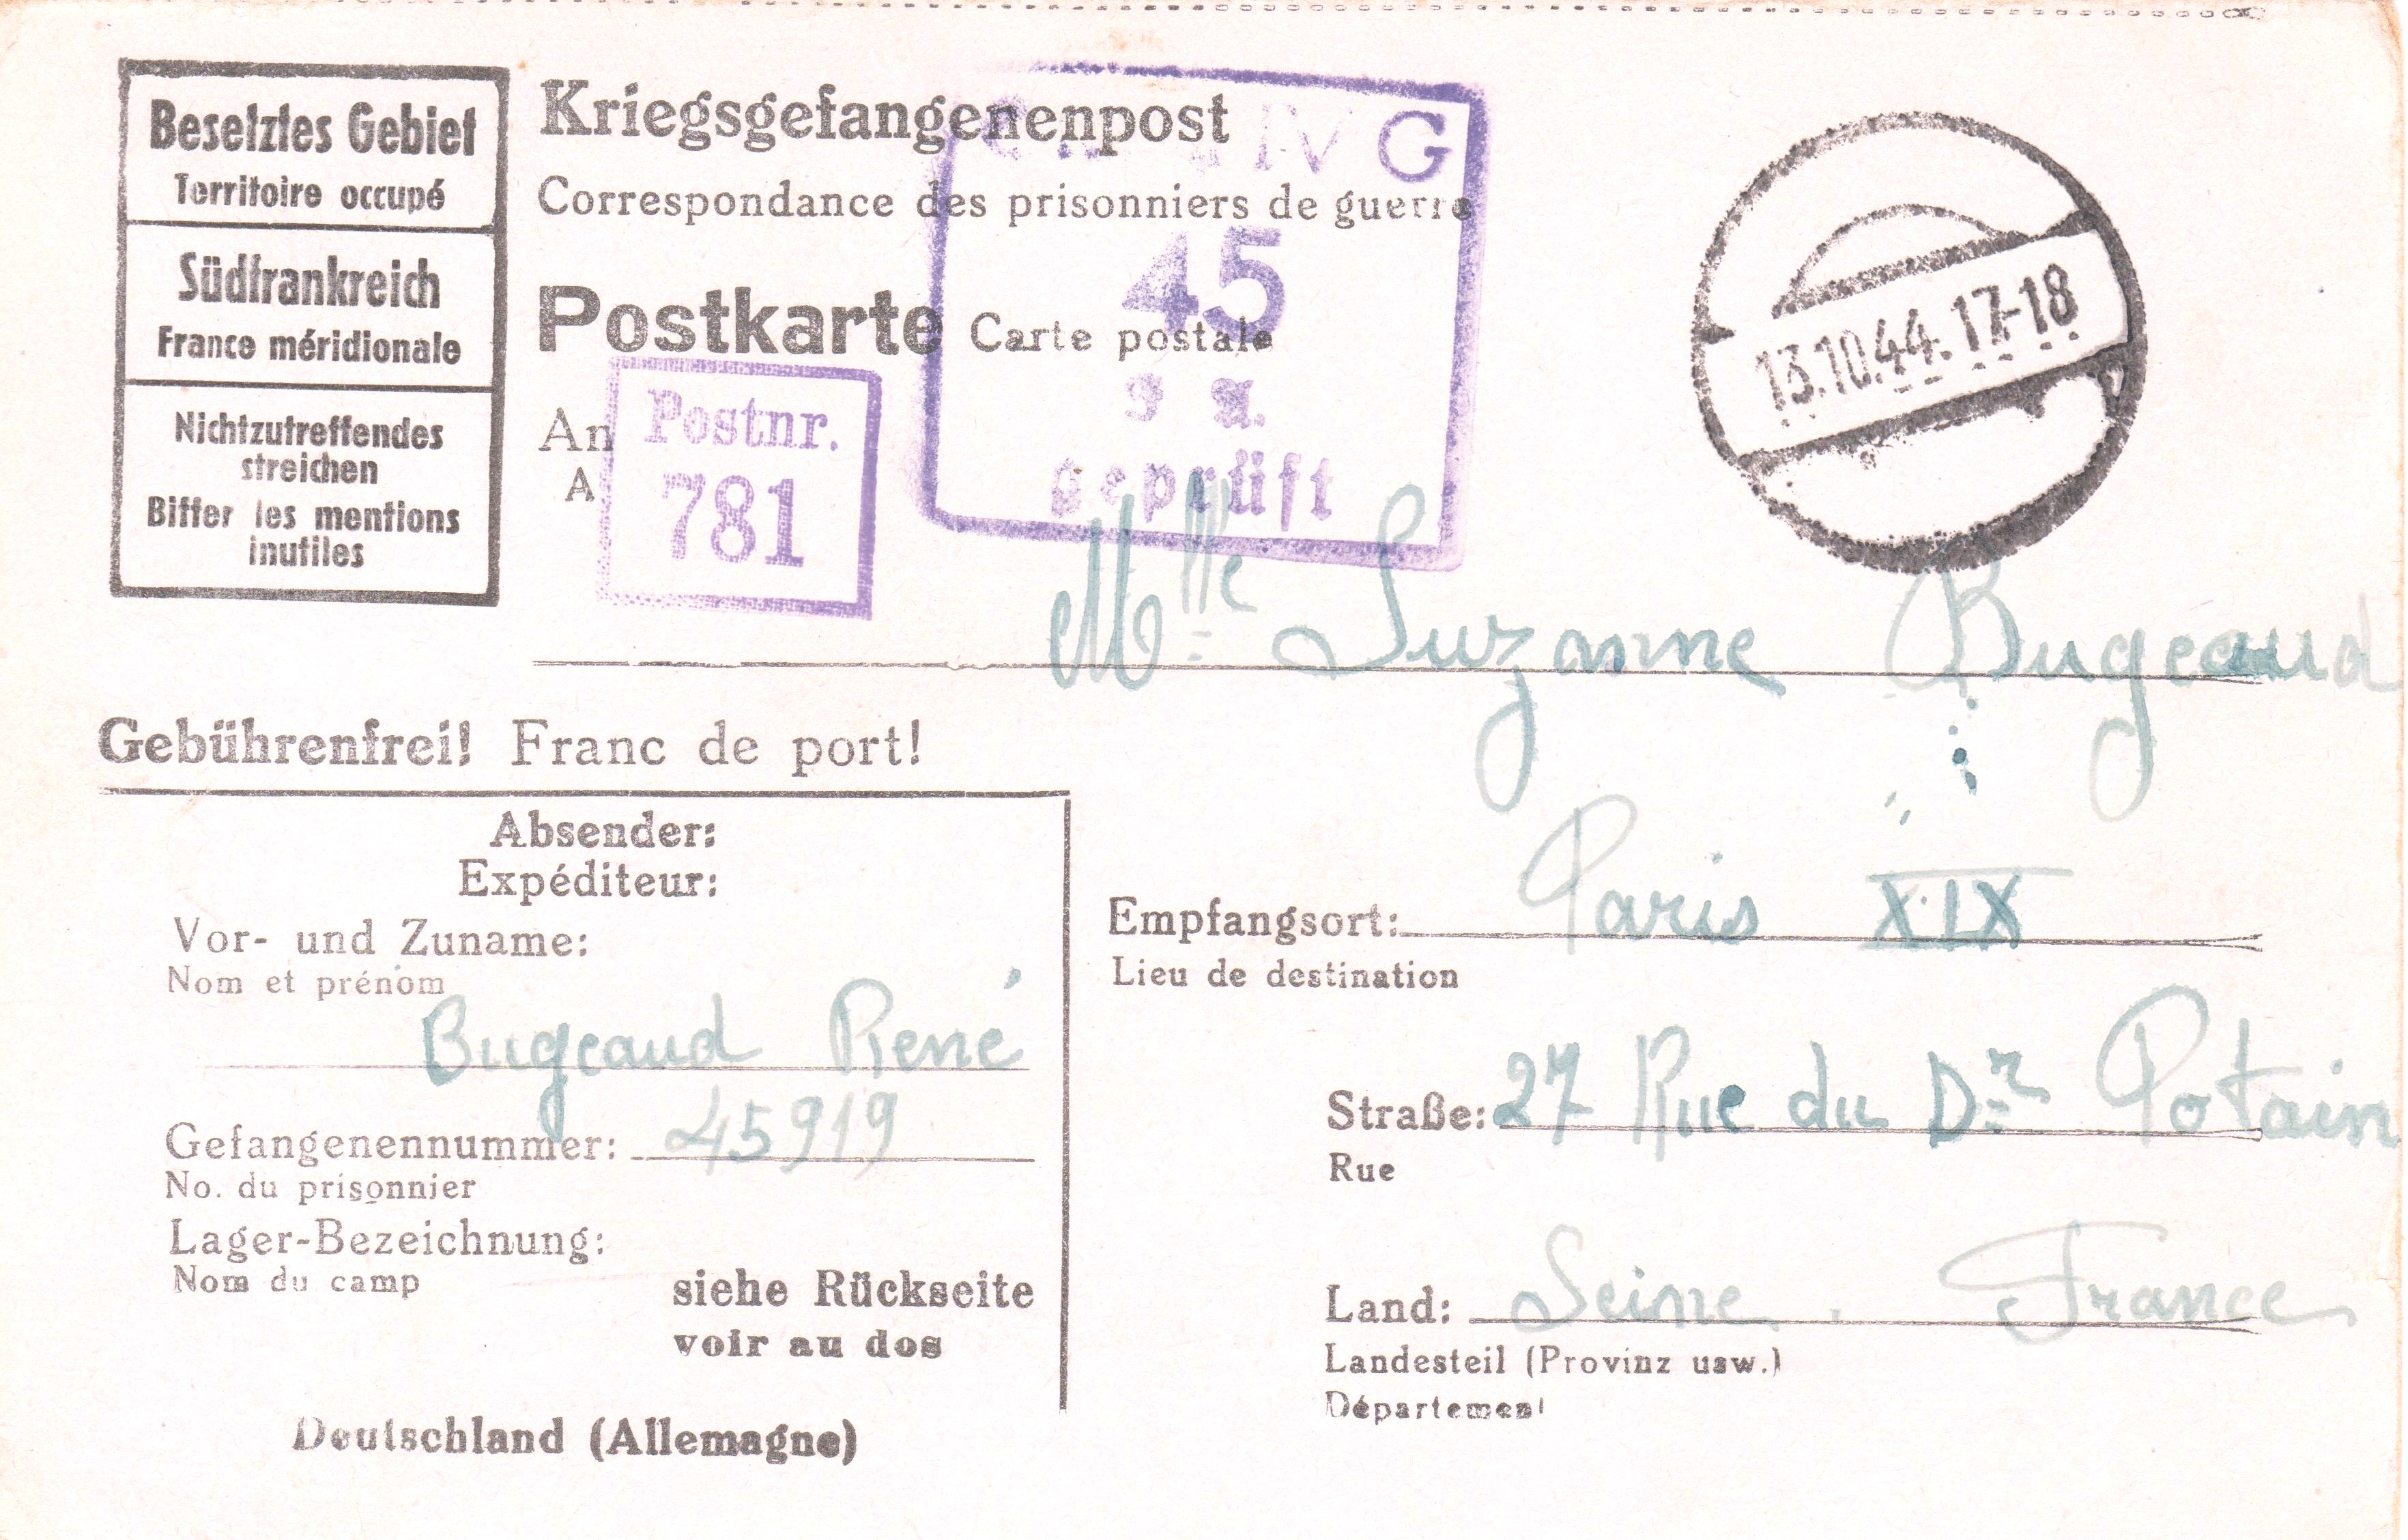 Besetztes Gebiet
Territoire occupé
Südfrankreich
France méridionale
Nichtzutreffendes
streichen
Biffer les mentions
inutiles
Kriegsgefangenenpost
Correspondance des prisonniers de guerre
Postkarte Carte postale
An
A
Postnr.
781
IV G
45
geprüft
13.10.44.17-18
Mlle Suzanne Bugeaud
Gebührenfrei! Franc de port!
Absender:
Expéditeur:
Vor- und Zuname:
Nom et prénom
Bugeaud René
Gefangenennummer: 45919
No. du prisonnier
Lager-Bezeichnung:
Nom du camp
siehe Rückseite
voir au dos
Deutschland (Allemagne)
Empfangsort: Paris XIX
Lieu de destination
Straße: 27 Rue du Dr Potain
Rue
Land: Seine. France
Landesteil (Provinz usw.)
Département